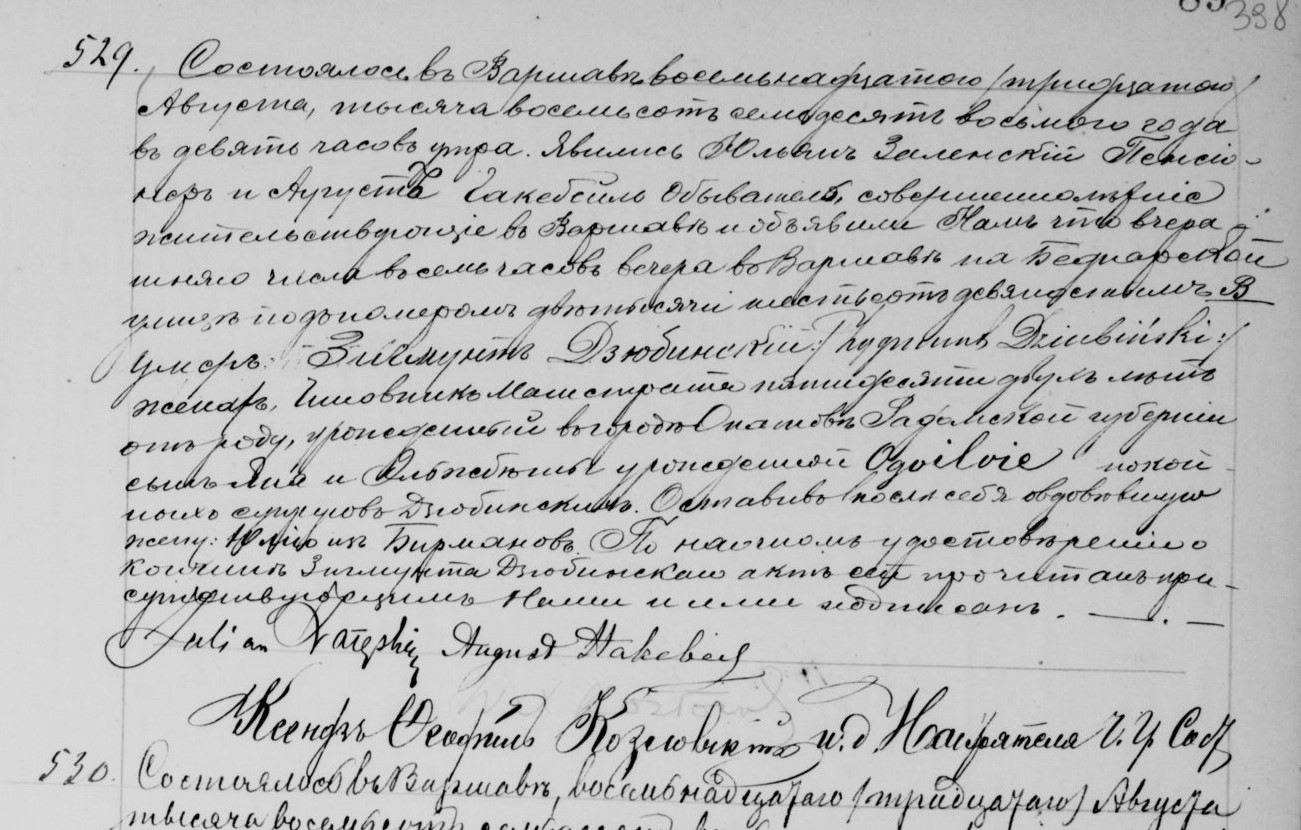 398
529. Состоялось въ Варшавѣ восемьнадцатого /тридцатого/
Августа, тысяча восемьсотъ семьдесятъ восьмого года
въ девять часовъ утра. Явились Юльянъ Заленскій Пенсіо-
неръ и Августъ Гакебейль Обыватель, совершеннолѣтніе
жительствующіе въ Варшавѣ и объявили Намъ что вчера-
шняго числа восемь часовъ вечера въ Варшавѣ на Беднарской
улицѣ подъ номеромъ двѣ тысячи шестьсотъ девяностымъ В
умеръ: Зигмунтъ Дзюбинскій :/ Zygmunt Dziubiński :/
женатъ, Чиновникъ Магистрата пятидесяти двухъ лѣтъ
отъ роду, урожденный въ городѣ Опатовѣ Радомской губерніи
сынъ Яна и Эльжбеты урожденной Ogvilvie покой-
ныхъ супруговъ Дзюбинскихъ. Оставивъ послѣ себя овдовѣвшую
жену: Юлію изъ Бирмановъ. По наочномъ удостовѣреніи о
кончинѣ Зигмунта Дзюбинскаго актъ сей прочитанъ при-
сутствующимъ Нами и ими подписанъ.
Julian Załęski August Hakebeil
Ксендзъ Ѳеофиль Козловскій и.д. Настоятеля
530. Состоялось въ Варшавѣ, восемьнадцатаго /тридцатаго/ Августа
тысяча восемьсотъ